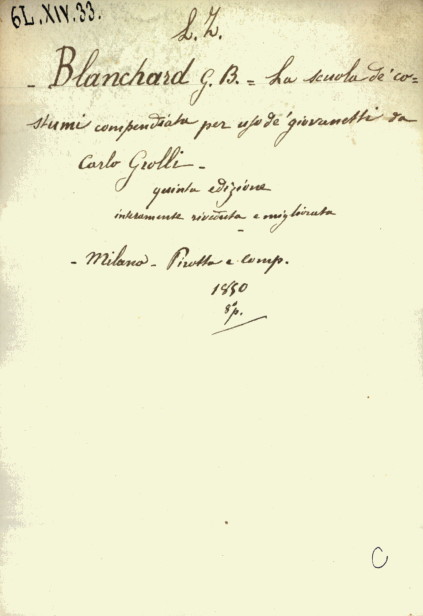 6L.XIV.33.
L.Z.
- Blanchard G. B. = La scuola de' co=
stumi compendiata per uso de' giovanetti da
Carlo Grolli -
quinta edizione
interamente riveduta e migliorata
- Milano - Pirotta e comp.
1850
8º p.
C